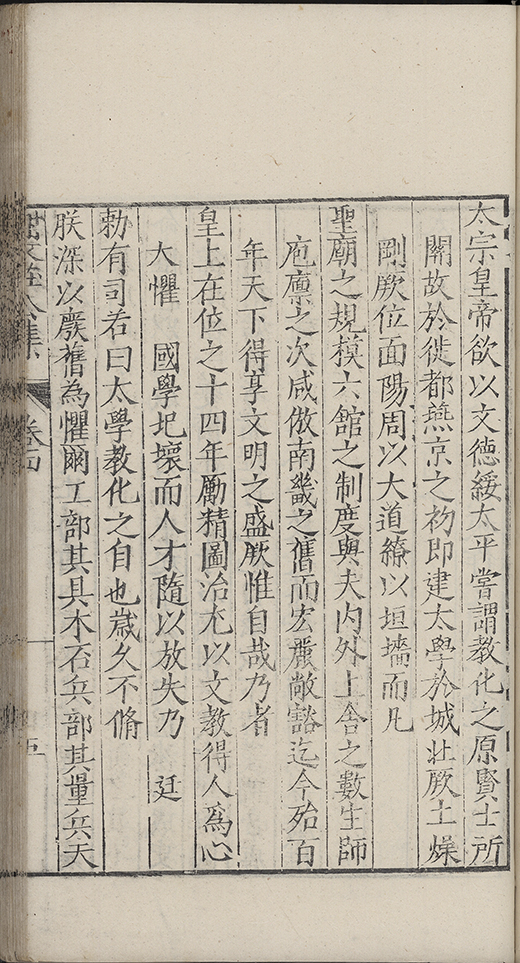 太宗皇帝欲以文德綏太平嘗謂教化之原賢士所
關故於徙都燕京之初即建太學於城北厥土燥
剛厥位面陽周以大道繚以垣墻而凡
聖廟之規模六館之制度與夫内外上舍之數生師
庖廪之次咸倣南畿之舊而宏麗敞豁迄今殆百
年天下得享文明之盛厥惟自哉乃者
皇上在位之十四年勵精圖治尤以文教得人為心
大懼　國學圮壞而人才隨以放失乃　廷
勑有司若曰太學教化之自也歳久不脩
朕深以廢舊為懼爾工部其具木石兵部其量兵夫
卷四
五